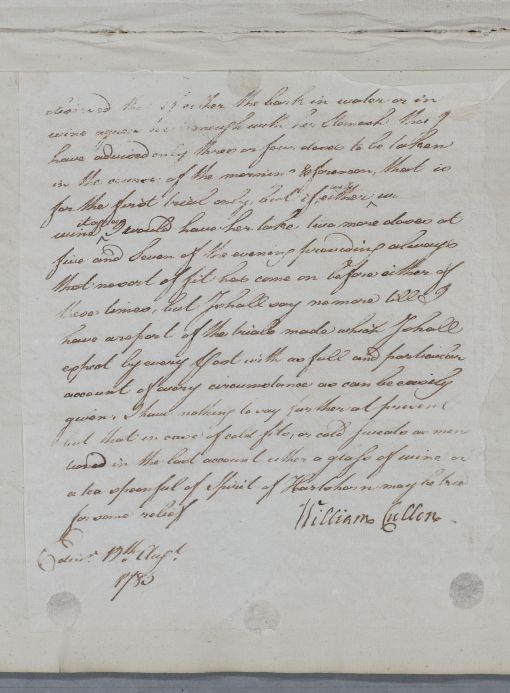 desired that if either the bark in water or in
wine agreed well enough with her Stomach that I
have advised only three or four doses to be taken
in the course of the morning & forenoon, that is
for the first trial only, but if either in water
wine it agree I would have her take two more doses at
five and Seven of the evening providing always
that no sort of fit has come on before either of
these times, but I shall say no more till I
have a report of the trials made which I shall
expect by every Post with as full and particular
account of every circumstance as can be easily
given, I have nothing to say further at present
but that in case of cold fits, or cold sweats as men
tioned in the last account either a glass of wine or
a tea spoonful of Spirit of Hartshorn may be tried
for some relief
William Cullen
Edinr. Augt.